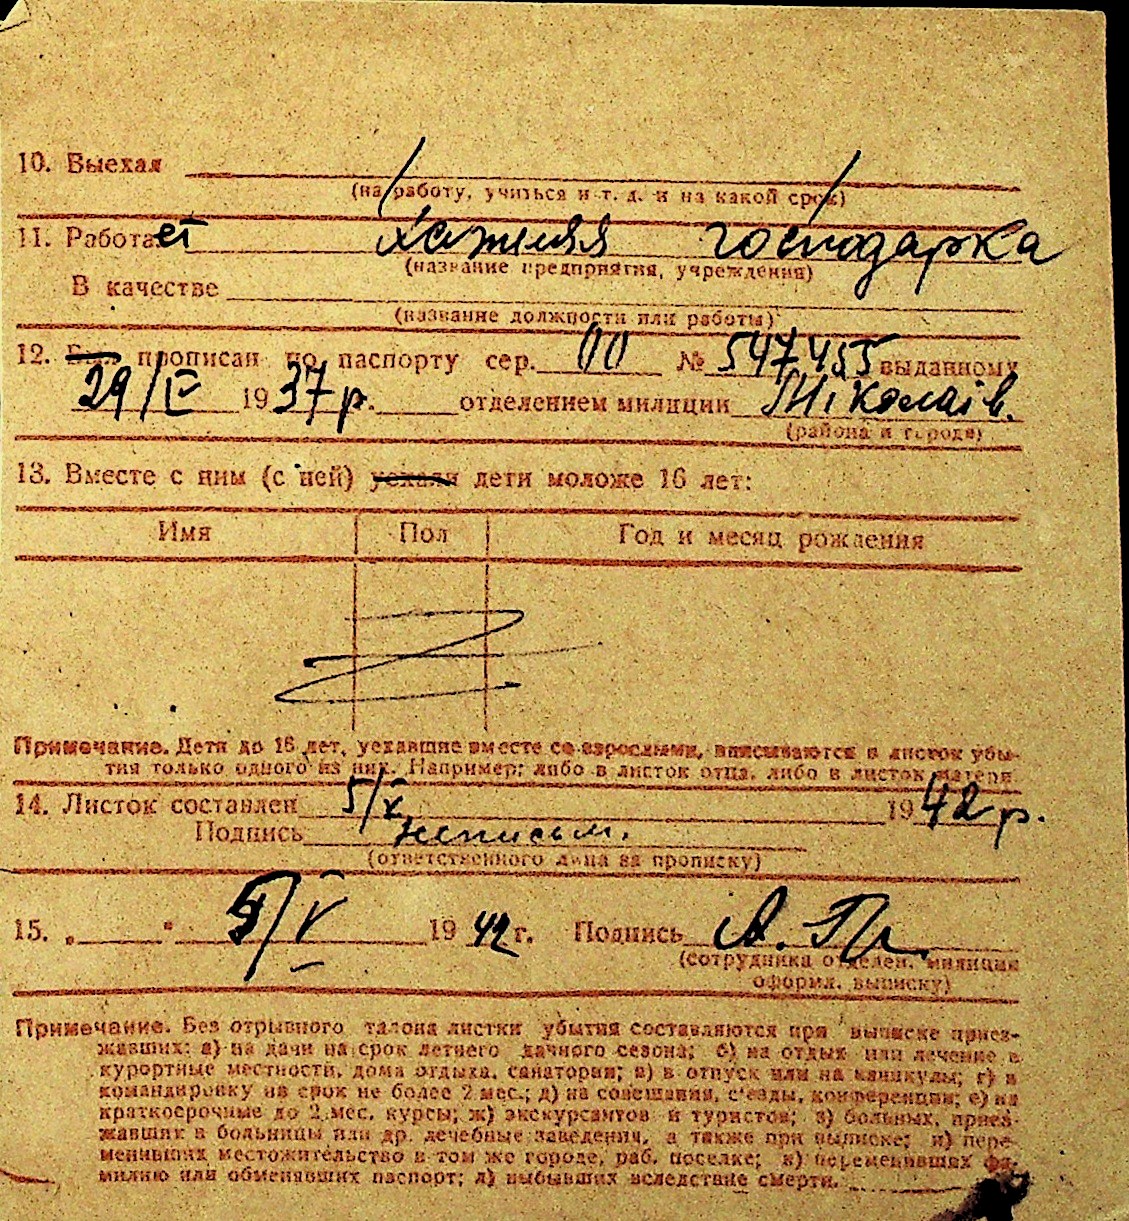 10. Выехал
(на работу, учиться и т. д. и на какой срок)
11. Работает хатняя господарка
(название предприятия, учреждения)
В качестве
(название должности или работы)
12. Был прописан по паспорту сер. 00 № 547455 выданному
29/IV 1937 р. отделением милиции Ніколаів.
(района и города)
13. Вместе с ним (с ней) уехали дети моложе 16 лет:
Имя Пол Год и месяц рождения
Примечание. Дети до 16 лет, уехавшие вместе со взрослыми, вписываются в листок убы-
тия только одного из них. Например: либо в листок отца, либо в листок матери
14. Листок составлен 5/V 1942 р.
Подпись неписьм.
(ответственного лица за прописку)
15. „ " 5/V 1942 г. Подпись
(сотрудника отделен. милиции
оформл. выписку)
Примечание. Без отрывного талона листки убытия составляются при выписке приез-
жавших: а) на дачи на срок летнего дачного сезона; б) на отдых или лечение в
курортные местности, дома отдыха, санатории; в) в отпуск или на каникулы; г) в
командировку на срок не более 2 мес.; д) на совещания, с'езды, конференции; е) на
краткосрочные до 2 мес. курсы; ж) экскурсантов и туристов; з) больных, приез-
жавших в больницы или др. лечебные заведения, а также при выписке; и) пере-
менивших местожительство в том же городе, раб. поселке; к) переменивших фа-
милию или обменявших паспорт; л) выбывших вследствие смерти.